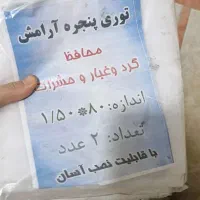 توری پنجره آرامش
محافظ
گرد وغبار و حشرات
اندازه: ۸۰*۱/۵۰
تعداد: ۲ عدد
با قابلیت نصب آسان